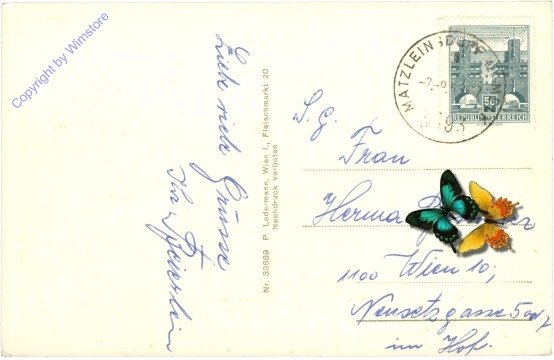 Copyright by Wimstore
Liebe viele Grüsse
Ihr
Nr. 39669 P. Ledermann, Wien I., Fleischmarkt 20
Nachdruck verboten
MATZLEINSDORF
50
REPUBLIK ÖSTERREICH
S. G.
Frau
Herma
1100 Wien 10,
im Hof.